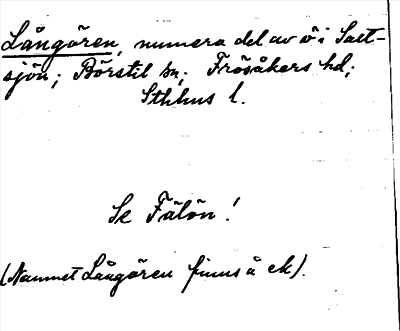 Långören, numera del av ö i Salt-
sjön; Börstil sn; Frösåkers hd;
Sthlms l.
Se Fälön!
(Namnet Långören finns å ek).